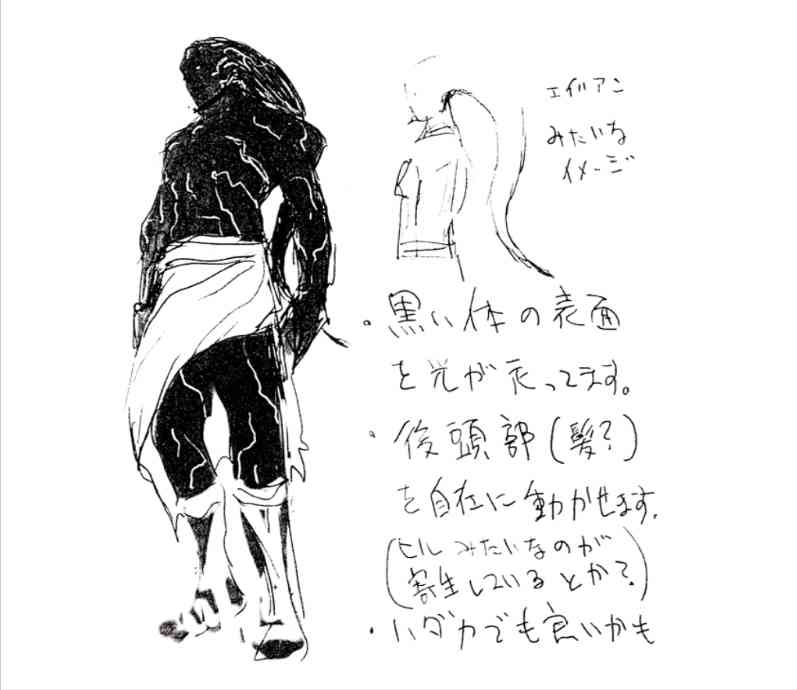 エイリアン
みたいな
イメージ
・黒い体の表面
を光が走ってます。
・後頭部(髪?)
を自在に動かせます。
(ヒルみたいなのが
寄生しているとか?)
・ハダカでも良いかも